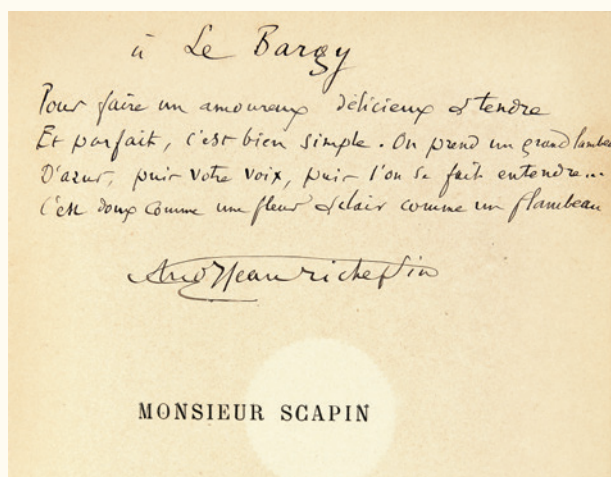 à Le Bargy
Pour faire un amoureux délicieux & tendre
Et parfait, c'est bien simple. On prend un grand lambeau
D'azur, puis votre voix, puis l'on se fait entendre...
C'est doux comme une fleur & clair comme un flambeau
Jean richepin
MONSIEUR SCAPIN